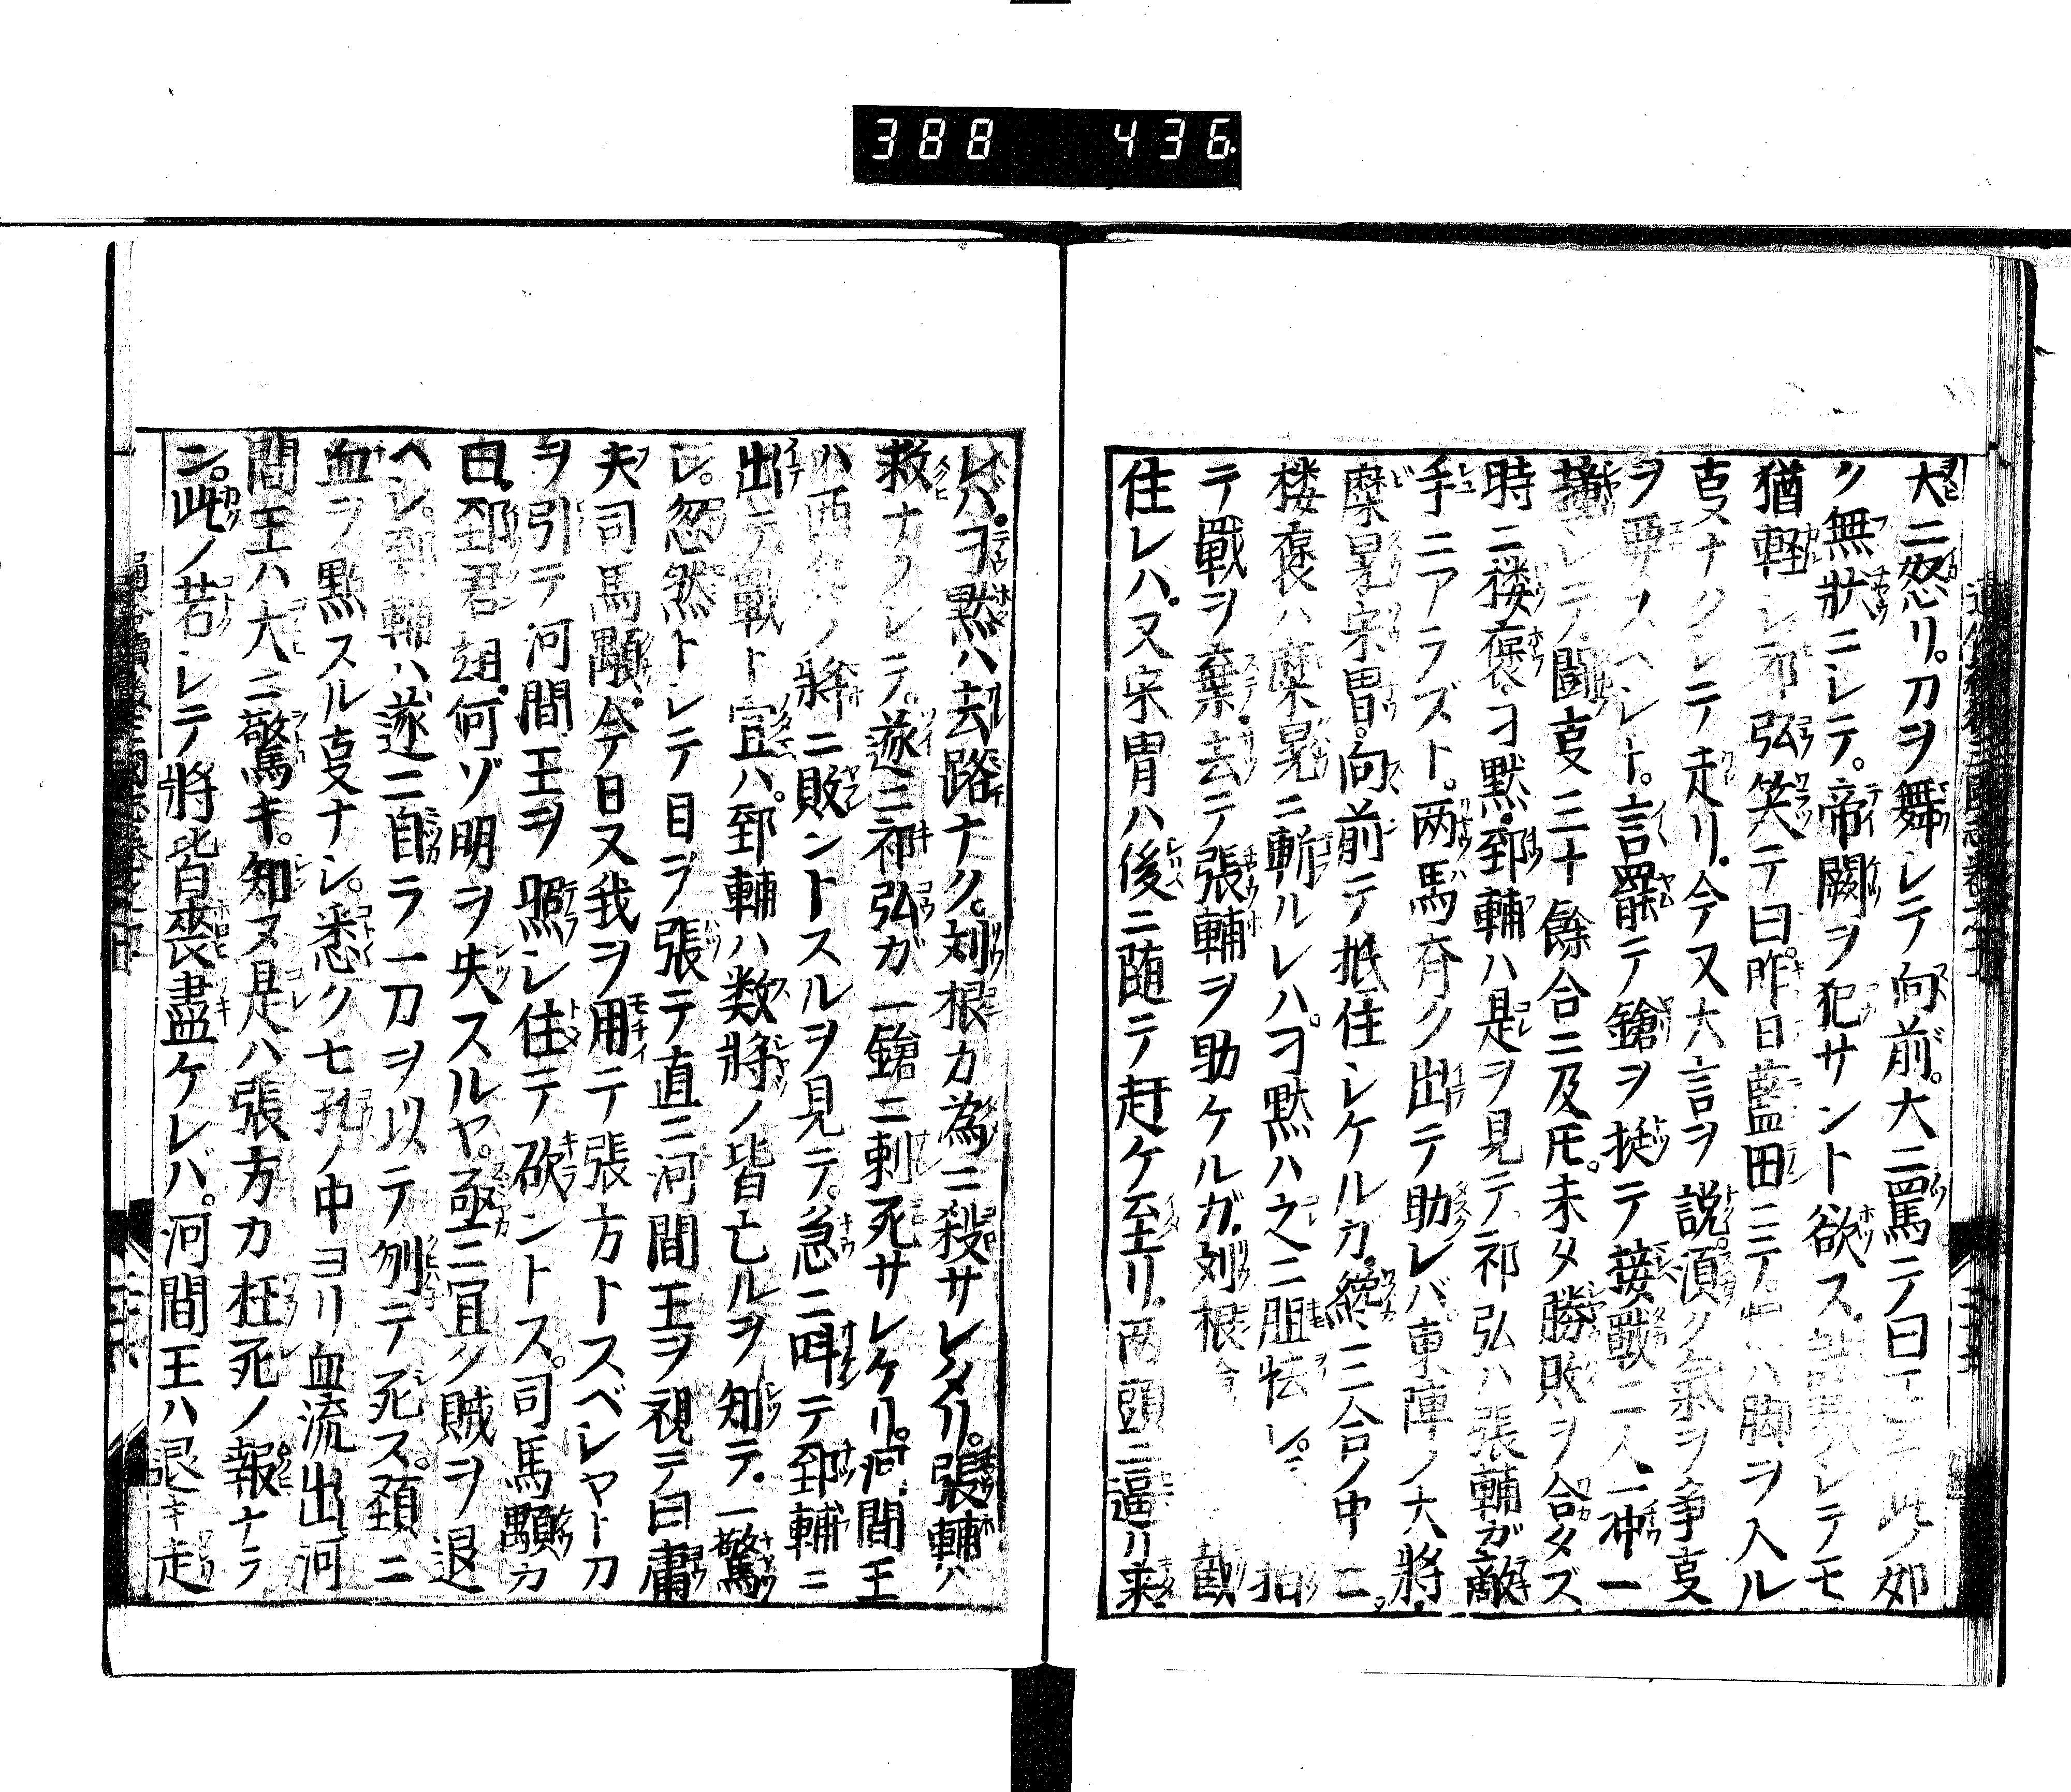 388 436
大ニ怒リ。刀ヲ舞シテ向前。大ニ罵テ曰 此ノ如
ク無狀ニシテ。帝闕ヲ犯サント欲ス。 シテモ
猶輕シ祁弘笑テ曰。昨日藍田ニテ ハ脚ヲ入ル
叓ナクシテ走リ。今又大言ヲ説。須ク氣ヲ爭叓
ヲ要スヘシト。言罷テ鎗ヲ挺テ接戰二人一冲一
撞シテ。鬪叓三十餘合ニ及𪜈。未タ勝敗ヲ合タズ
時ニ楼褒刁默。郅輔ハ是ヲ見テ祁弘ハ張輔ガ敵
手ニアラズト。两馬斉ク出テ助レバ東陣ノ大將
糜晃宋冑。向前テ抵住シケルカ。纔ニ三合ノ中ニ。
楼褒ハ糜晃ニ斬ルレハ。刁默ハ之ニ胆怯シ。 拍
テ戰ヲ棄去テ張輔ヲ助ケルガ。刘根 截
住レハ。又宋冑ハ後ニ随テ赶ケ至リ。两頭ニ逼リ来
レハ。刁默ハ去路ナク。刘根カ為ニ殺サレメリ。張輔ハ
救ナクシテ。遂ニ祁弘ガ一鎗ニ刺死サレケリ。河間王
ハ西 ノ將ニ敗ントスルヲ見テ。急ニ呌テ郅輔ニ
出テ戰ト宜ハ。郅輔ハ数將ノ皆亡ルヲ知テ。一驚
シ。忽然トシテ目ヲ張テ直ニ河間王ヲ視テ曰庸
夫司馬顒。今日又我ヲ用テ張方トスベシヤト刀
ヲ引テ河間王ヲ照シ住テ砍ントス。司馬顒カ
曰。郅君 何ゾ明ヲ失スルヤ。亟ニ宜ク賊ヲ退
ヘシ。郅輔ハ遂ニ自ラ一刀ヲ以テ刎テ死ス。頚ニ
血ヲ㸃スル叓ナシ。悉ク七孔ノ中ヨリ血流出河
間王ハ大ニ驚キ。知ヌ是ハ張方カ枉死ノ報ナラ
ン。此ノ若シテ將皆喪盡ケレバ。河間王ハ退キ走